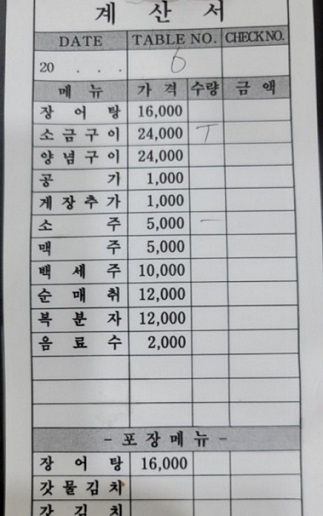 계 산 서
DATE TABLE NO. CHECK NO.
20 . . . 6
메 뉴 가 격 수량 금 액
장 어 탕 16,000
소금구이 24,000 T
양념구이 24,000
공 가 1,000
게장추가 1,000
소 주 5,000 一
맥 주 5,000
백 세 주 10,000
순 매 취 12,000
복 분 자 12,000
음 료 수 2,000
- 포 장 메 뉴 -
장 어 탕 16,000
갓물김치
갓 김 치